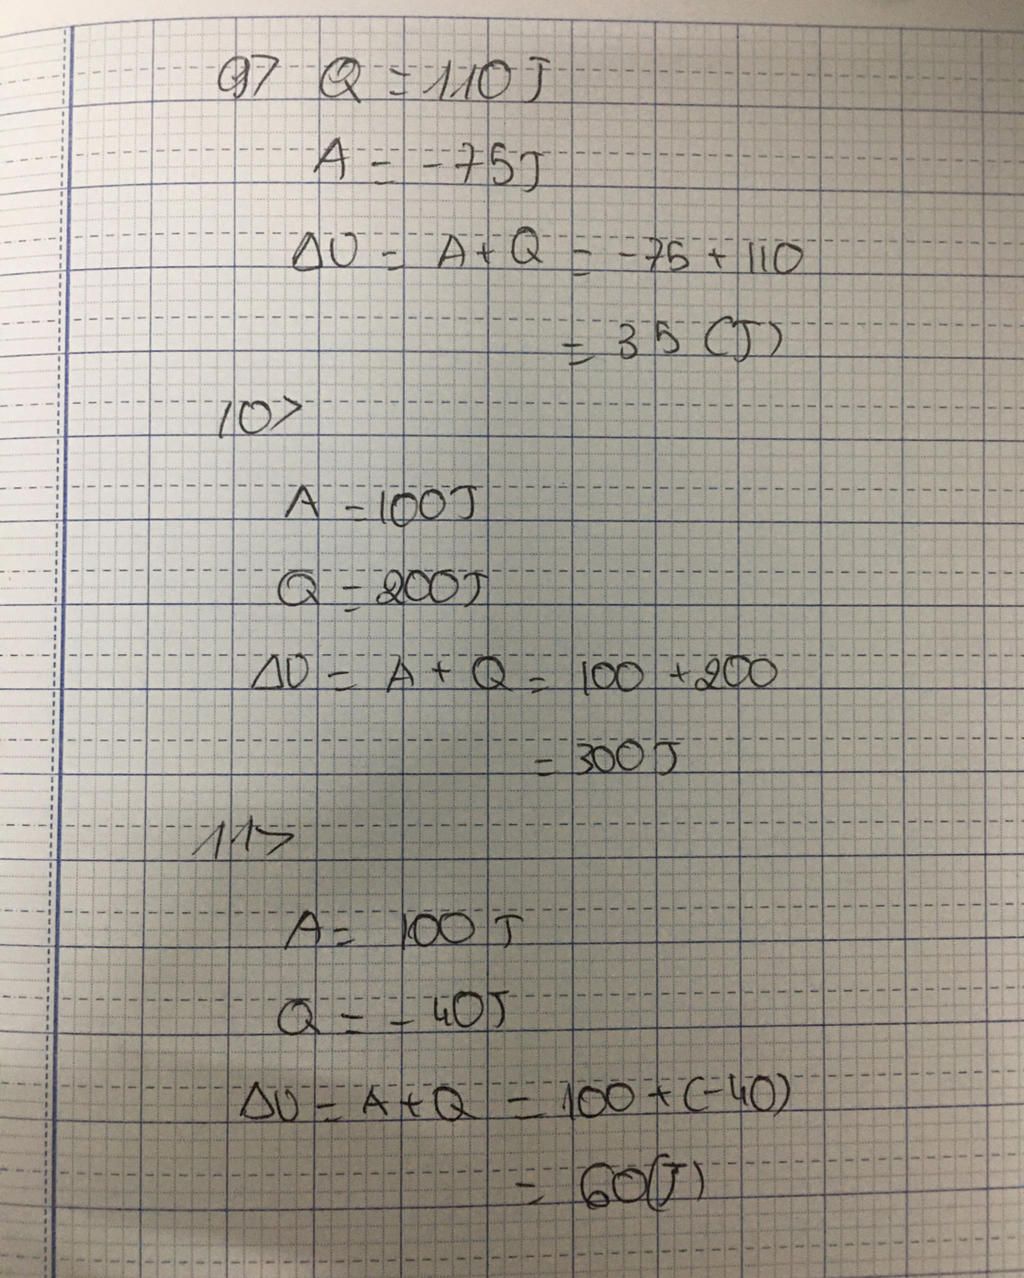 9> Q = 110J
A = -75J
ΔU = A + Q = -75 + 110
= 35 (J)
10>
A = 100J
Q = 200J
ΔU = A + Q = 100 + 200
= 300J
11>
A = 100J
Q = - 40J
ΔU = A + Q = 100 + (-40)
= 60(J)